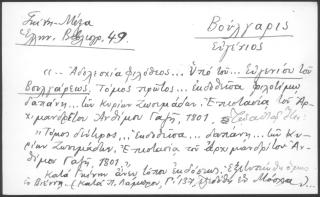 Γκίνη-Μέξα
Ἑλλην. Βιβλιογρ. 49.
Βούλγαρις
Εὐγένιος
«... Ἀδολεσχία φιλόθεος... Ὑπὸ τοῦ... Εὐγενίου τοῦ
Βουλγάρεως. Τόμος πρῶτος... ἐκδοθεῖσα φιλοτίμῳ
δαπάνῃ... τῶν Κυρίων Ζωσιμάδων. Ἐπιστασίᾳ τοῦ Ἀρ-
χιμανδρίτου Ἀνθίμου Γαζῆ, 1801.
"Τόμος δεύτερος,... Ἐκδοθεῖσα... δαπάνῃ... τῶν Κυ-
ρίων Ζωσιμάδων. Ἐπιστασίᾳ τοῦ Ἀρχιμανδρίτου Ἀν-
θίμου Γαζῆ, 1801."
κατὰ Γκίνην ἄνευ τόπου ἐκδόσεως. Ἐξετυπώθη ὅμως
ἐν Βιέννῃ. (κατὰ Π. Λάμπρον, Γ. 137, ἐν Μόσχᾳ)...